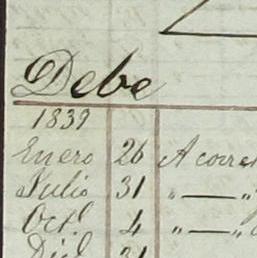 Debe
1839
Enero 26 A
Julio 31 " — "
Oct.l 4 " — "